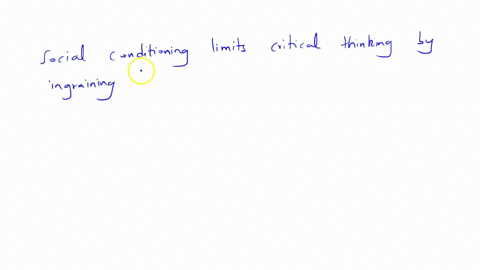 Social conditioning limits critical thinking by
ingraining